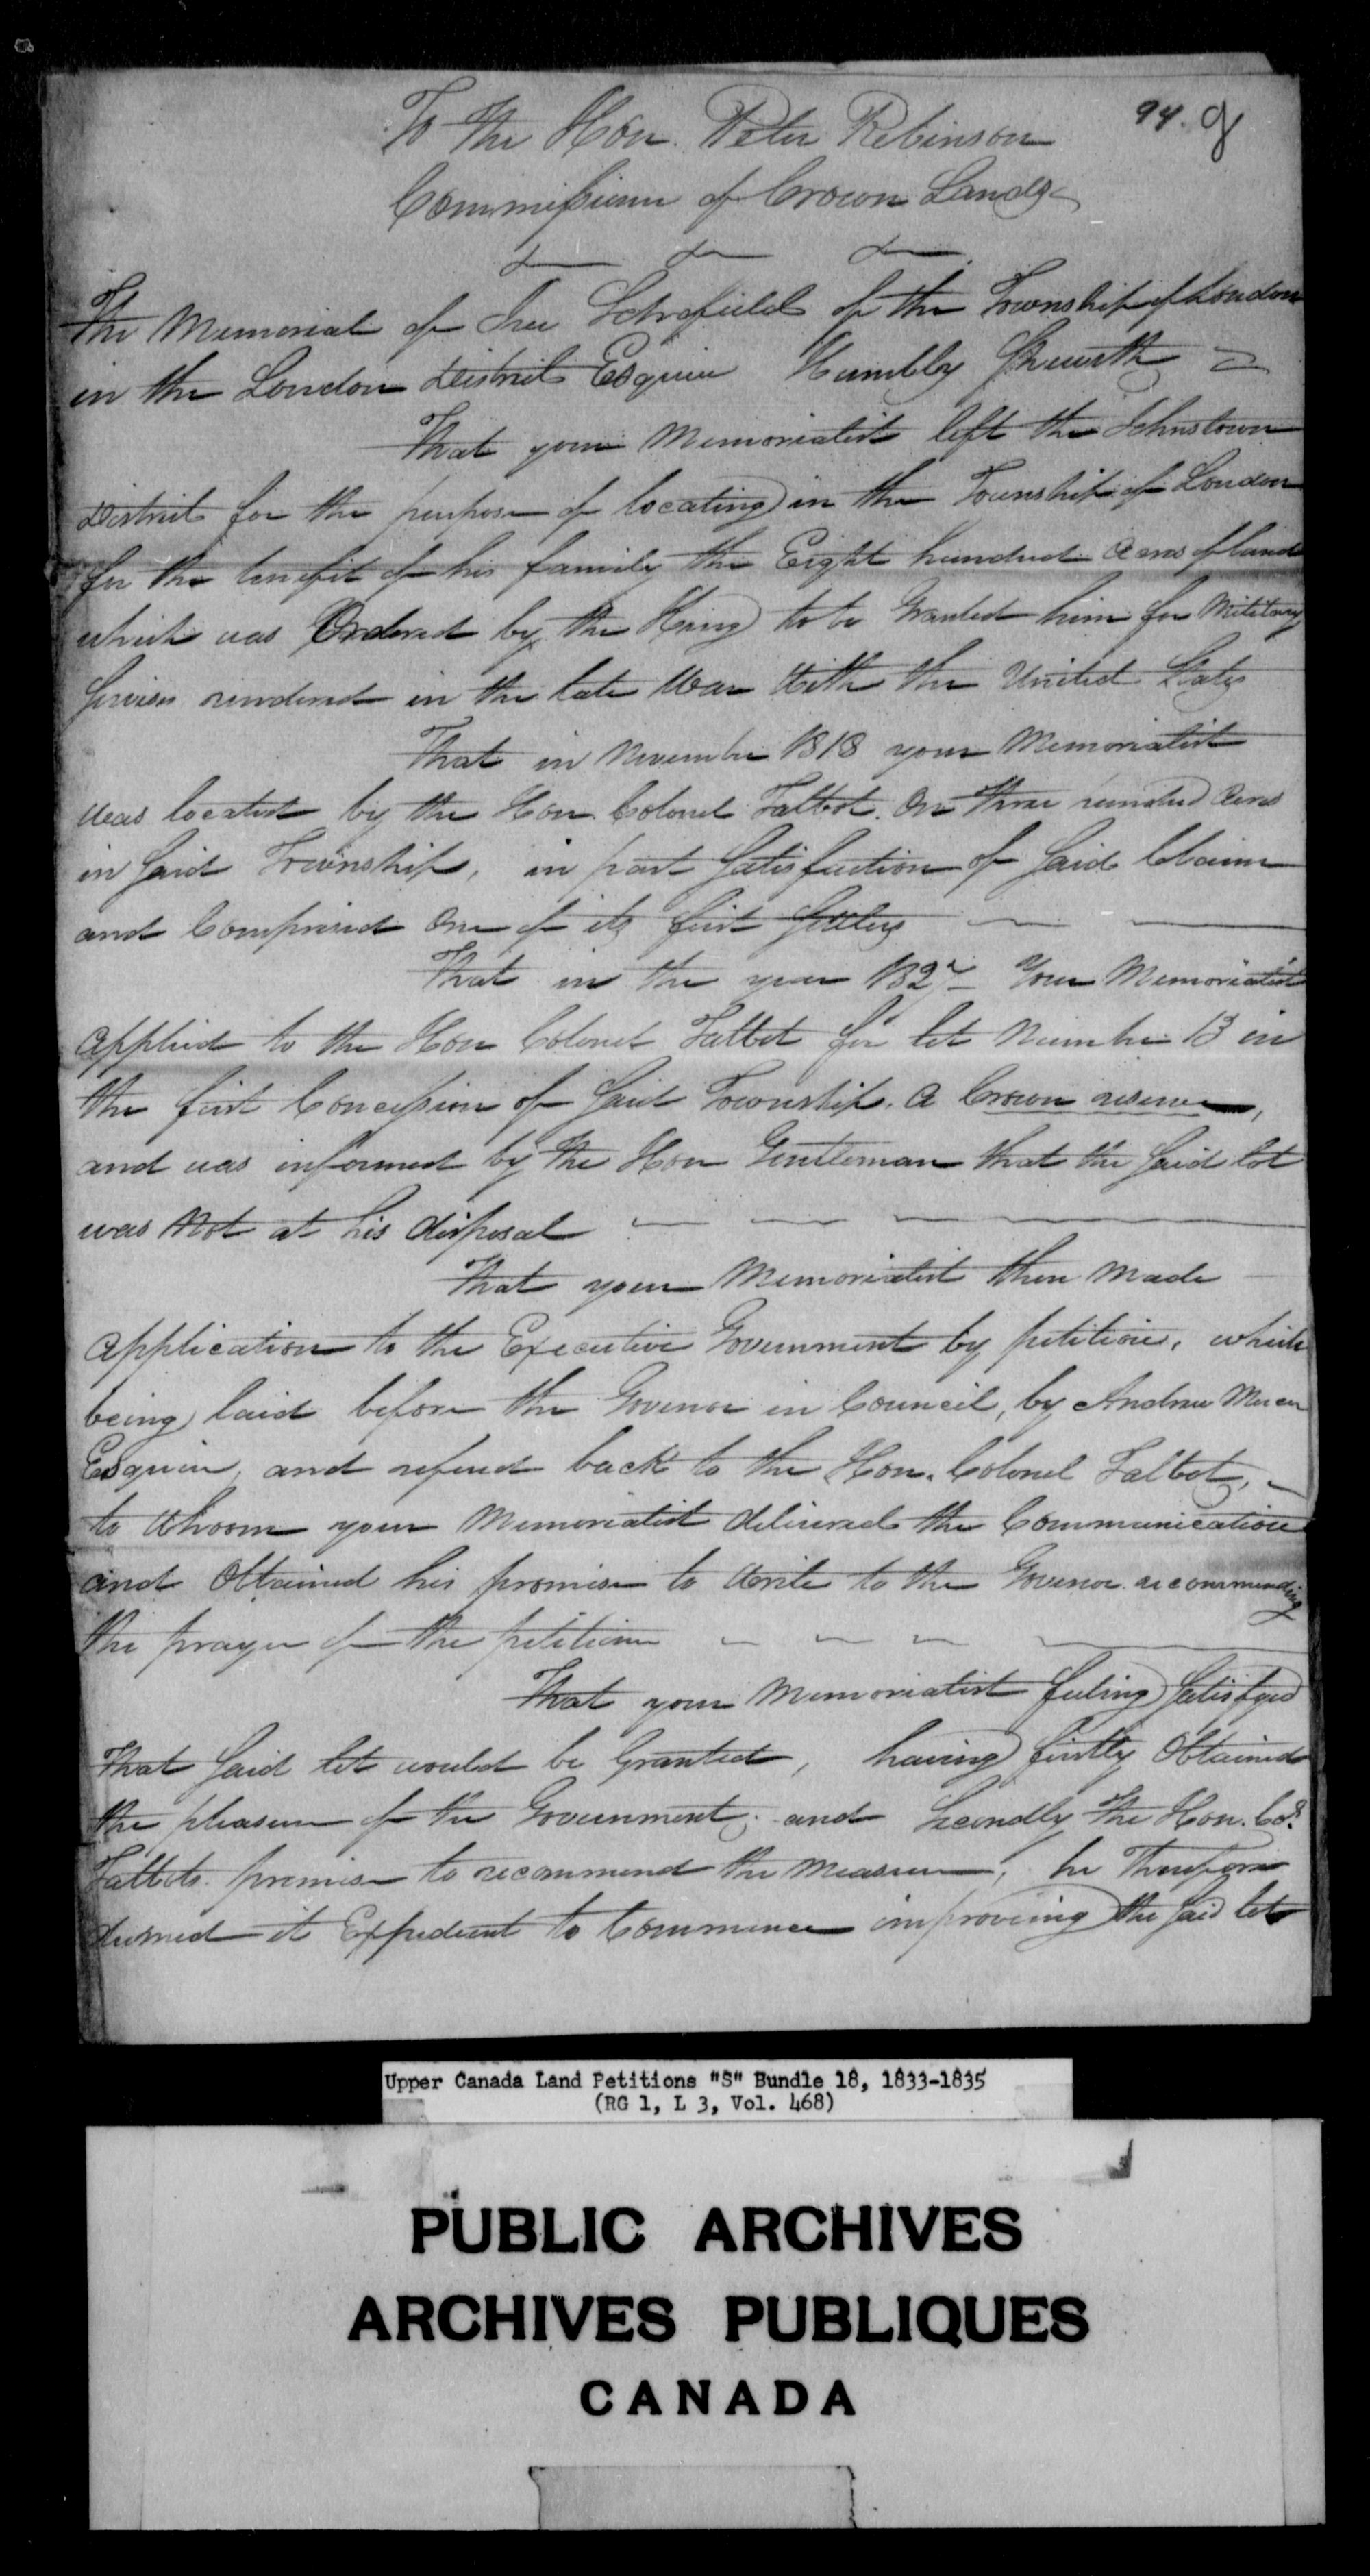 94. g
To the Hon. Peter Robinson
Commissioner of Crown Lands
The Memorial of Ira Schofield of the Township of London
in the London District Esquire Humbly Sheweth
That your Memorialist left the Johnstown
District for the purpose of locating in the Township of London
for the benefit of his family the Eight hundred Acres of land
which was Ordered by the King to be Granted him for Military
Services rendered in the late War With the United States
That in November 1818 your Memorialist
was located by the Hon. Colonel Talbot. On three hundred Acres
in Said Township, in part Satisfaction of Said Claim
and Comprised One of its first Settlers
That in the year Your Memorialist
applied to the Hon Colonel Talbot for lot Number 13 in
the first Concession of Said Township. A Crown reserve,
and was informed by the Hon Gentleman that the Said lot
was Not at his disposal
That your Memorialist then Made
Application to the Executive Government by petition, which
being laid before the Govenor in Council, by Andrew Mercer
Esquire, and refered back to the Hon. Colonel Talbot,
to Whoom your Memorialist delivered the Communication
and Obtained his promise to Write to the Govenor recommending
the prayer of the petition
That your Memorialist feeling Satisfyed
That Said lot would be Granted, having firstly Obtained
the pleasure of the Government; and Secondly the Hon. Col.
Talbots promise to recommend the Measure, he Therefore
deemed it Expedient to Commence improveing the Said lot
Upper Canada Land Petitions "S" Bundle 18, 1833-1835
(RG 1, L 3, Vol. 468)
PUBLIC ARCHIVES
ARCHIVES PUBLIQUES
CANADA